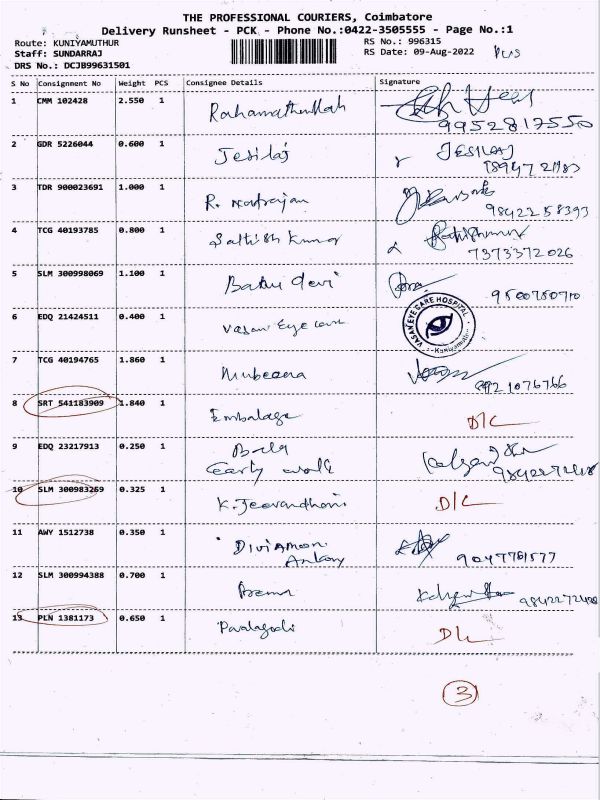 THE PROFESSIONAL COURIERS, Coimbatore
Delivery Runsheet - PCK - Phone No.:0422-3505555 - Page No.:1
Route: KUNIYAMUTHUR
Staff: SUNDARRAJ
DRS No.: DCJB99631501
RS No.: 996315
RS Date: 09-Aug-2022
S No Consignment No Weight PCS Consignee Details Signature
1 CMM 102428 2.550 1 Rahamathullah
9952817550
2 GDR 5226044 0.600 1 Jesilaj JESILAJ
3 TDR 900023691 1.000 1 R. Natrajan
9842258393
4 TCG 40193785 0.800 1 Sathish Kumar
7373372026
5 SLM 300998069 1.100 1 Banu devi
9500750710
6 EDQ 21424511 0.400 1 Vasan Eye care VASAN EYE CARE HOSPITAL
7 TCG 40194765 1.860 1 Mubeena
8921076766
8 SRT 541183909 1.840 1 Embalage D/L
9 EDQ 23217913 0.250 1 Bala
10 SLM 300983269 0.325 1 K. Jeevandhani D/L
11 AWY 1512738 0.350 1 Diviamon
Antony
9047781577
12 SLM 300994388 0.700 1
13 PLN 1381173 0.650 1 D/L
3